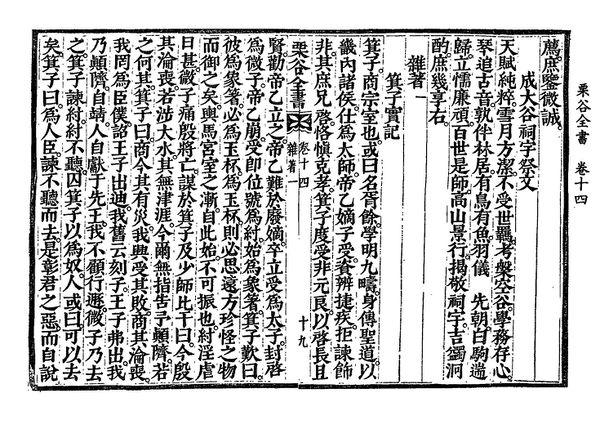 栗谷全書 卷十四
薦。庶鑒微誠。
成大谷祠宇祭文
天賦純粹。雪月方潔。不受世羈。考槃空谷。學務存心。
琴追古音。孰伴林居。有鳥有魚。羽儀 先朝。白駒遄
歸。立懦廉頑。百世是師。高山景行。揭敬祠宇。吉蠲泂
酌。庶幾享右。
雜著一
箕子實記
箕子。商宗室也。或曰名胥餘。學明九疇。身傳聖道。以
畿內諸侯。仕爲太師。帝乙嫡子受。資辨捷疾。拒諫飾
非。其庶兄啓。恪愼克孝。箕子度受非元良。以啓長且
栗谷全書 卷十四 雜著一 十九
賢。勸帝乙立之。帝乙難於廢嫡。卒立受爲太子。封啓
爲微子。帝乙崩。受卽位。號爲紂。始爲象箸。箕子歎曰。
彼爲象箸。必爲玉杯。爲玉杯則必思遠方珍怪之物
而御之矣。輿馬宮室之漸。自此始。不可振也。紂淫虐
日甚。微子痛殷將亡。謀於箕子及少師比干曰。今殷
其淪喪。若涉大水。其無津涯。今爾無指告予。顚隮若
之何其。箕子曰。商今其有災。我興受其敗。商其淪喪。
我罔爲臣僕。詔王子出迪。我舊云刻子。王子弗出。我
乃顚隮。自靖。人自獻于先王。我不顧行遯。微子乃去
之。箕子諫紂。紂不聽。囚箕子以爲奴。人或曰。可以去
矣。箕子曰。爲人臣諫不聽而去。是彰君之惡而自說